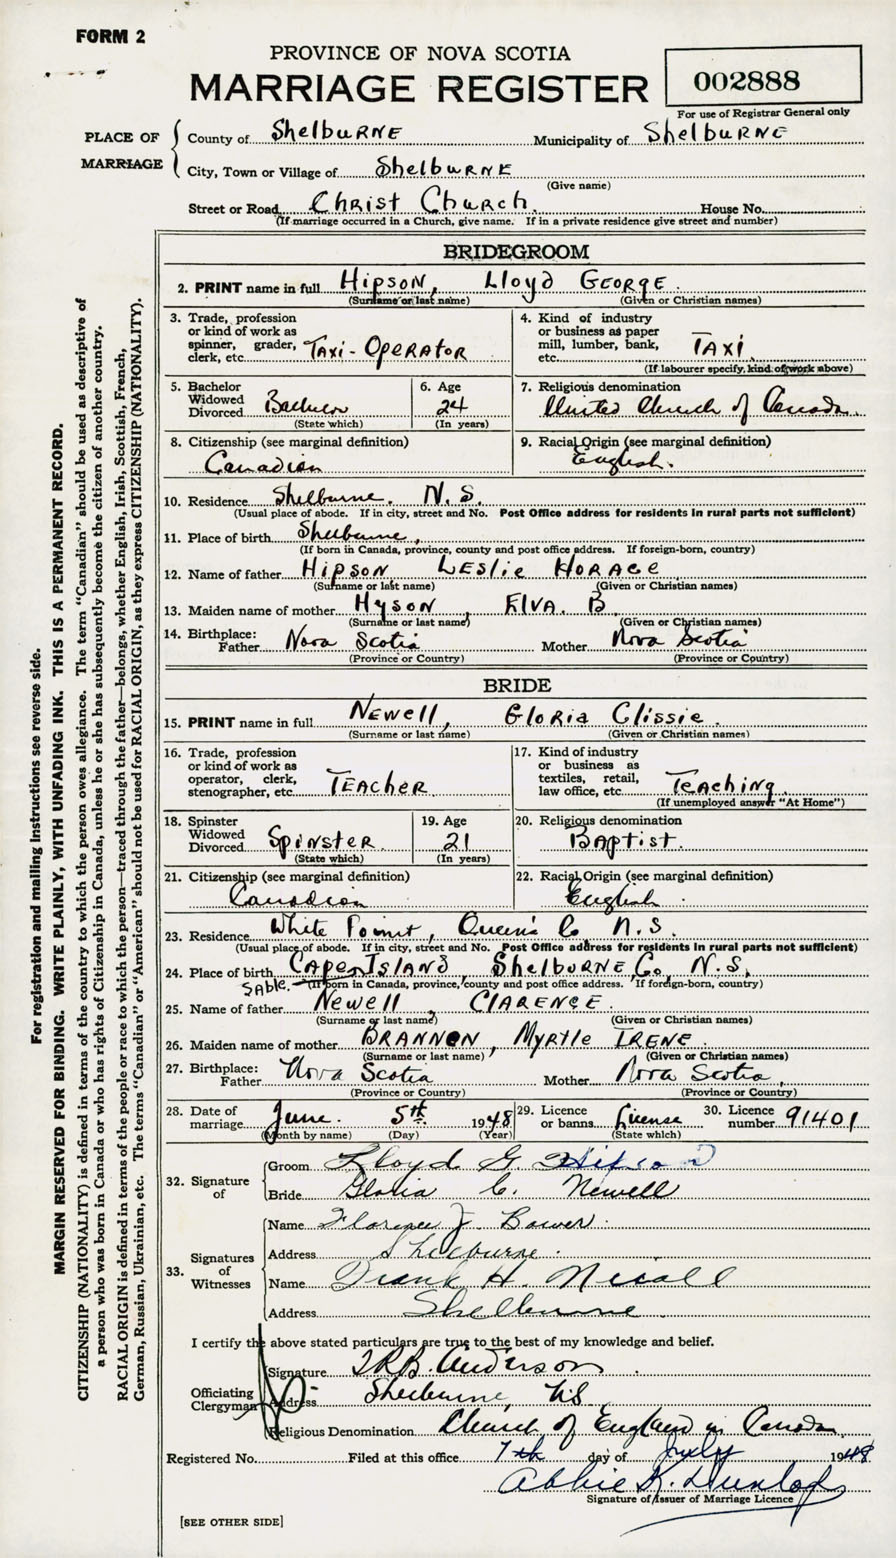 FORM 2
PROVINCE OF NOVA SCOTIA
MARRIAGE REGISTER
002888
For use of Registrar General only
PLACE OF MARRIAGE
County of Shelburne Municipality of Shelburne
City, Town or Village of Shelburne
(Give name)
Street or Road Christ Church. House No.
(If marriage occurred in a Church, give name. If in a private residence give street and number)
BRIDEGROOM
2. PRINT name in full Hipson, Lloyd George.
(Surname or last name) (Given or Christian names)
3. Trade, profession or kind of work as spinner, grader, clerk, etc. Taxi-Operator
4. Kind of industry or business as paper mill, lumber, bank, etc. Taxi
(If labourer specify, kind of work above)
5. Bachelor Widowed Divorced Bachelor
(State which)
6. Age 24
(In years)
7. Religious denomination United Church of Canada
8. Citizenship (see marginal definition) Canadian
9. Racial Origin (see marginal definition) English.
10. Residence Shelburne. N.S.
(Usual place of abode. If in city, street and No. Post Office address for residents in rural parts not sufficient)
11. Place of birth Shelburne,
(If born in Canada, province, county and post office address. If foreign-born, country)
12. Name of father Hipson Leslie Horace
(Surname or last name) (Given or Christian names)
13. Maiden name of mother Hyson, Elva. B
(Surname or last name) (Given or Christian names)
14. Birthplace: Father Nova Scotia Mother Nova Scotia
(Province or Country) (Province or Country)
BRIDE
15. PRINT name in full Newell, Gloria Clissie.
(Surname or last name) (Given or Christian names)
16. Trade, profession or kind of work as operator, clerk, stenographer, etc. Teacher
17. Kind of industry or business as textiles, retail, law office, etc. Teaching
(If unemployed answer "At Home")
18. Spinster Widowed Divorced Spinster
(State which)
19. Age 21
(In years)
20. Religious denomination Baptist.
21. Citizenship (see marginal definition) Canadian
22. Racial Origin (see marginal definition) English
23. Residence White Point, Queen's Co N.S.
(Usual place of abode. If in city, street and No. Post Office address for residents in rural parts not sufficient)
24. Place of birth Cape Island, Shelburne Co., N.S.
Sable. (If born in Canada, province, county and post office address. If foreign-born, country)
25. Name of father Newell, Clarence.
(Surname or last name) (Given or Christian names)
26. Maiden name of mother Brannon, Myrtle Irene
(Surname or last name) (Given or Christian names)
27. Birthplace: Father Nova Scotia Mother Nova Scotia,
(Province or Country) (Province or Country)
28. Date of marriage June. 5th. 1948
(Month by name) (Day) (Year)
29. Licence or banns License
(State which)
30. Licence number 91401
32. Signature of
Groom Lloyd G. Hipson
Bride Gloria C. Newell
33. Signatures of Witnesses
Name Florence J. Bower.
Address Shelburne.
Name Frank H. Nicoll
Address Shelburne
I certify the above stated particulars are true to the best of my knowledge and belief.
Officiating Clergyman
Signature T.R.B. Anderson.
Address Shelburne, N.S
Religious Denomination Church of England in Canada
Registered No. Filed at this office 7th day of July 1948
Abbie K. Dunlop
Signature of Issuer of Marriage Licence
[SEE OTHER SIDE]
For registration and mailing instructions see reverse side.
MARGIN RESERVED FOR BINDING. WRITE PLAINLY, WITH UNFADING INK. THIS IS A PERMANENT RECORD.
CITIZENSHIP (NATIONALITY) is defined in terms of the country to which the person owes allegiance. The term "Canadian" should be used as descriptive of
a person who was born in Canada or who has rights of Citizenship in Canada, unless he or she has subsequently become the citizen of another country.
RACIAL ORIGIN is defined in terms of the people or race to which the person—traced through the father—belongs, whether English, Irish, Scottish, French,
German, Russian, Ukrainian, etc. The terms "Canadian" or "American" should not be used for RACIAL ORIGIN, as they express CITIZENSHIP (NATIONALITY).